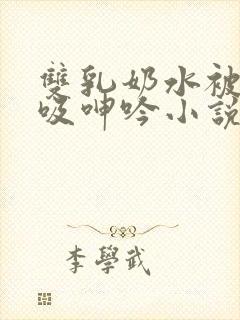 雙乳奶水被
吸呻吟小説
李學武